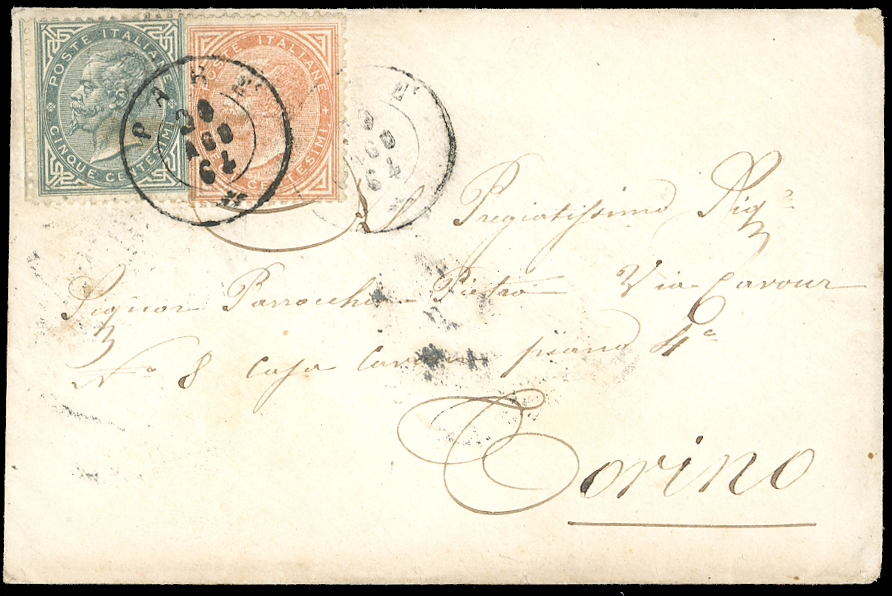 POSTE ITALIANE
CINQUE CENTESIMI
POSTE ITALIANE
CENTESIMI
30
AGO
64
AGO
64
Al Pregiatissimo Sig.
Signor Parrocha Pietro Via Cavour
No 8 casa Cavour piano 4°
Torino